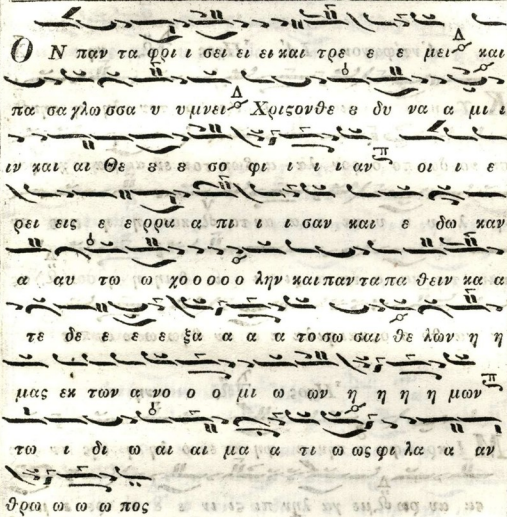 Ὁ Ν παν τα φρι ι σει ει ει και τρε ε ε μει Δ και
πα σα γλωσσα υ υ μνει Δ Χριςονθε ȣ δυ να α μι ι
ιν και αι Θε ȣ ȣ ȣ σο φι ι ι ι αν π οι ι ε
ρει εις ε ερρα α πι ι ι σαν και ε δω καν
α αυ τω ω χο ο ο ο ο λην και παν τα πα θειν κα α
τε δε ε ε ε ξα α α α το σω σαι θε λων η η
μας εκ των α νο ο ο μι ω ων η η η η μων π
τω ι δι ω αι αι μα α τι ω ως φι λα α αν
θρω ω ω ω πος